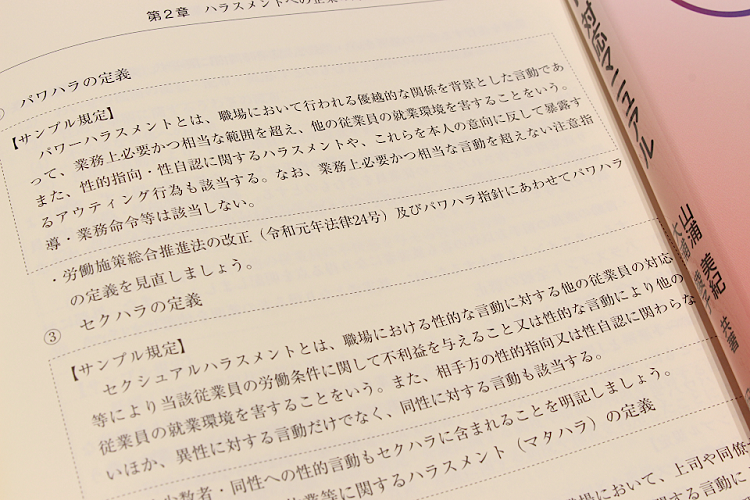 第2章 ハラスメントへの企業
パワハラの定義
【サンプル規定】
パワーハラスメントとは、職場において行われる優越的な関係を背景とした言動であ
って、業務上必要かつ相当な範囲を超え、他の従業員の就業環境を害することをいう。
また、性的指向・性自認に関するハラスメントや、これらを本人の意向に反して暴露す
るアウティング行為も該当する。なお、業務上必要かつ相当な言動を超えない注意指
導・業務命令等は該当しない。
・労働施策総合推進法の改正（令和元年法律24号）及びパワハラ指針にあわせてパワハラ
の定義を見直しましょう。
③ セクハラの定義
【サンプル規定】
セクシュアルハラスメントとは、職場における性的な言動に対する他の従業員の対応
等により当該従業員の労働条件に関して不利益を与えること又は性的な言動により他の
従業員の就業環境を害することをいう。また、相手方の性的指向又は性自認に関わらな
いほか、異性に対する言動だけでなく、同性に対する言動も該当する。
少数者・同性への性的言動もセクハラに含まれることを明記しましょう。
業等に関するハラスメント（マタハラ）の定義
場において、上司や同僚
関する言動に
対応マニュアル
山浦 美紀
共著